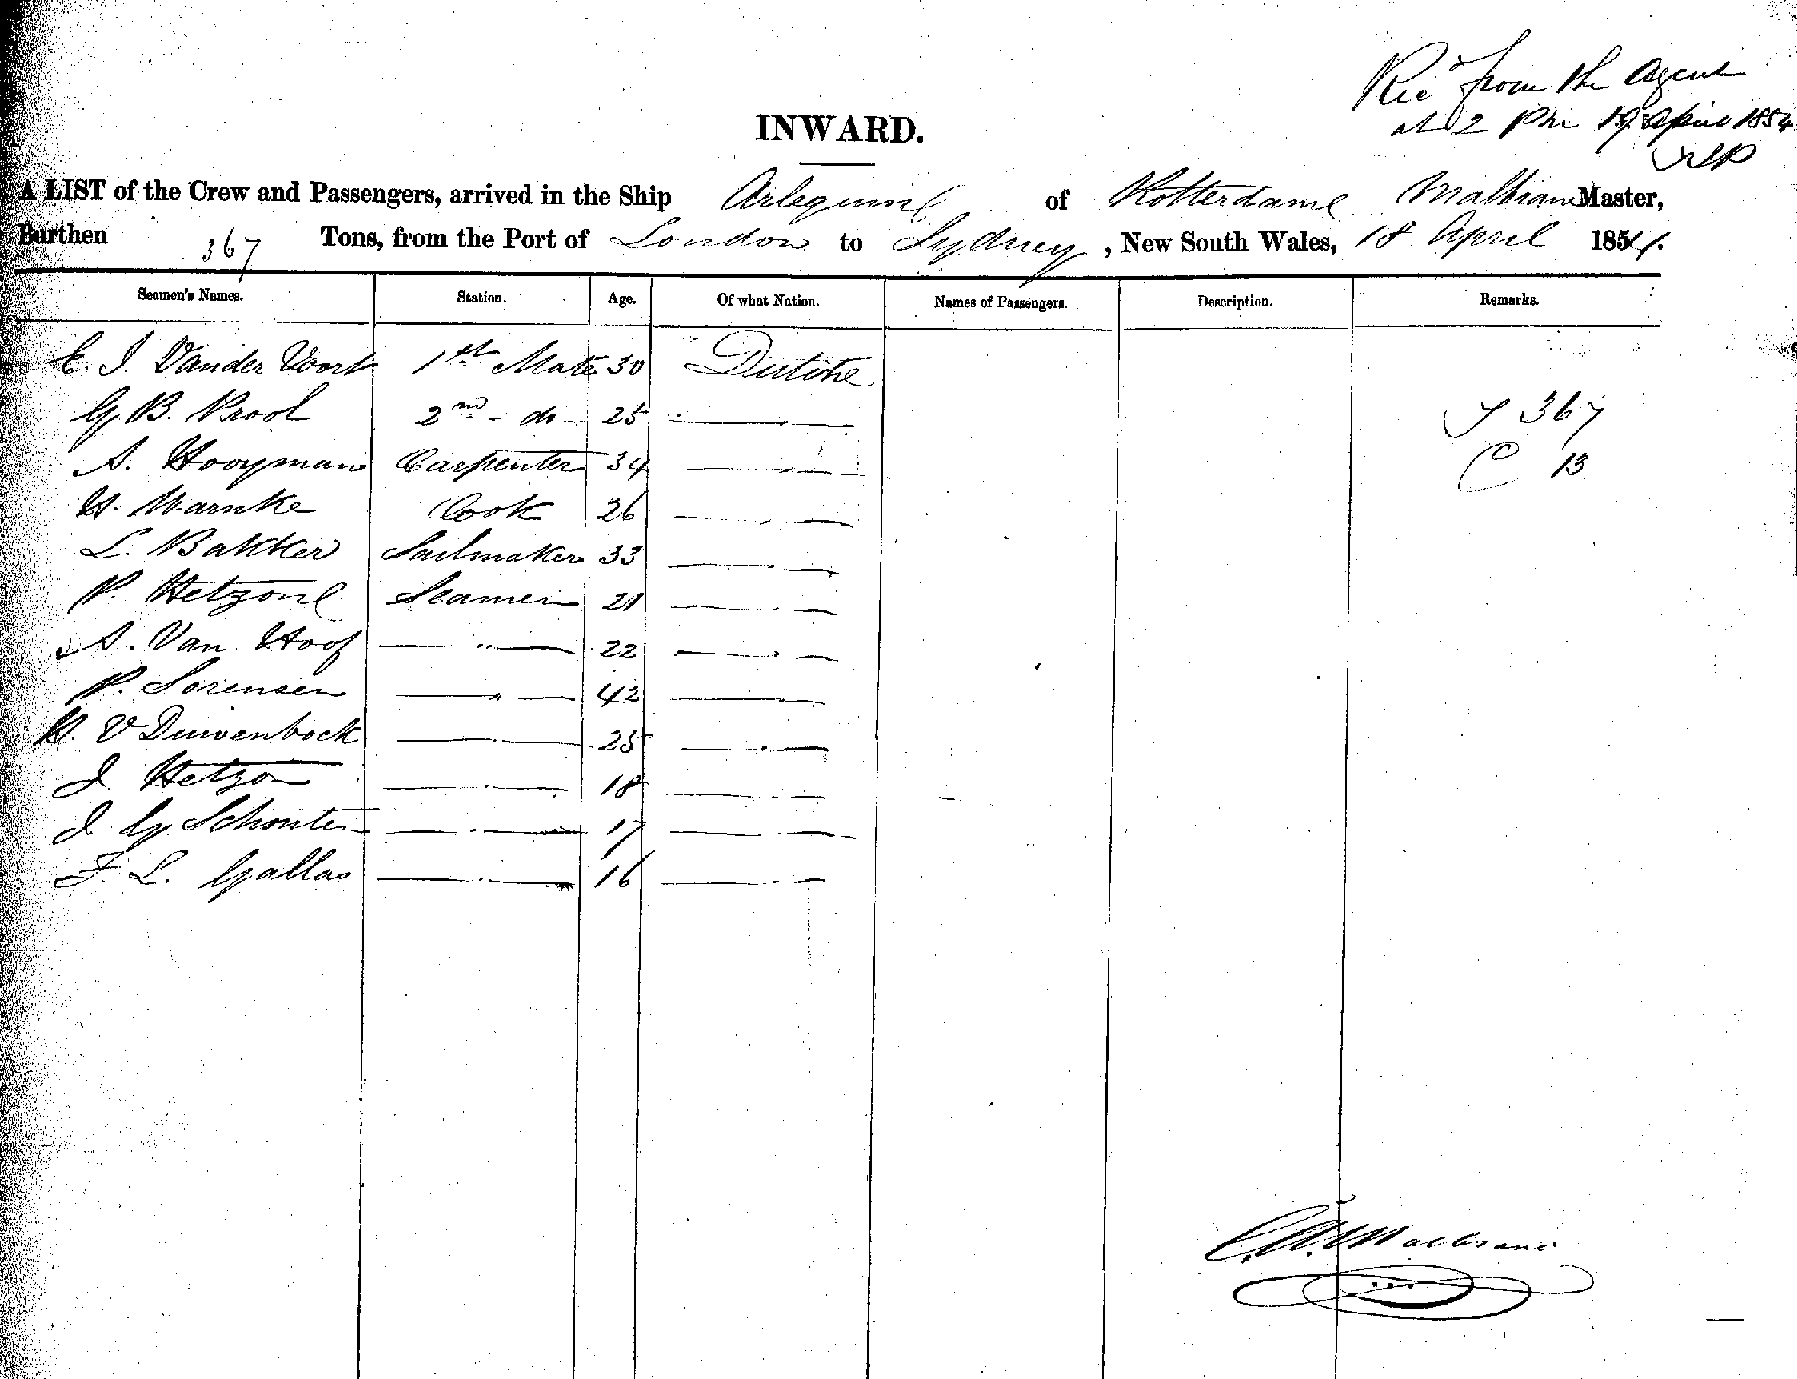 Recd from the Agent
at 2 Pm 19 April 1854
INWARD.
A LIST of the Crew and Passengers, arrived in the Ship Arlequin of Rotterdame Malbranc Master,
Burthen 367 Tons, from the Port of London to Sydney, New South Wales, 18 April 1854.
Seamen's Names. Station. Age. Of what Nation. Names of Passengers. Description. Remarks.
E. J. Vander Voort 1st Mate 30 Dutche
G B. Prool 2nd - do - 25 T 367
A. Hooyman Carpenter 34 C 13
H. Warnke Cook 26
L. Bakker Sailmaker 33
P. Hetzone Seamen 21
A. Van Hoof " 22
P. Sorensen " 42
H. V Duivenbock 25
J. Hetzon 18
J. G Schouten 17
F. L. Gallas 16
Malbranc